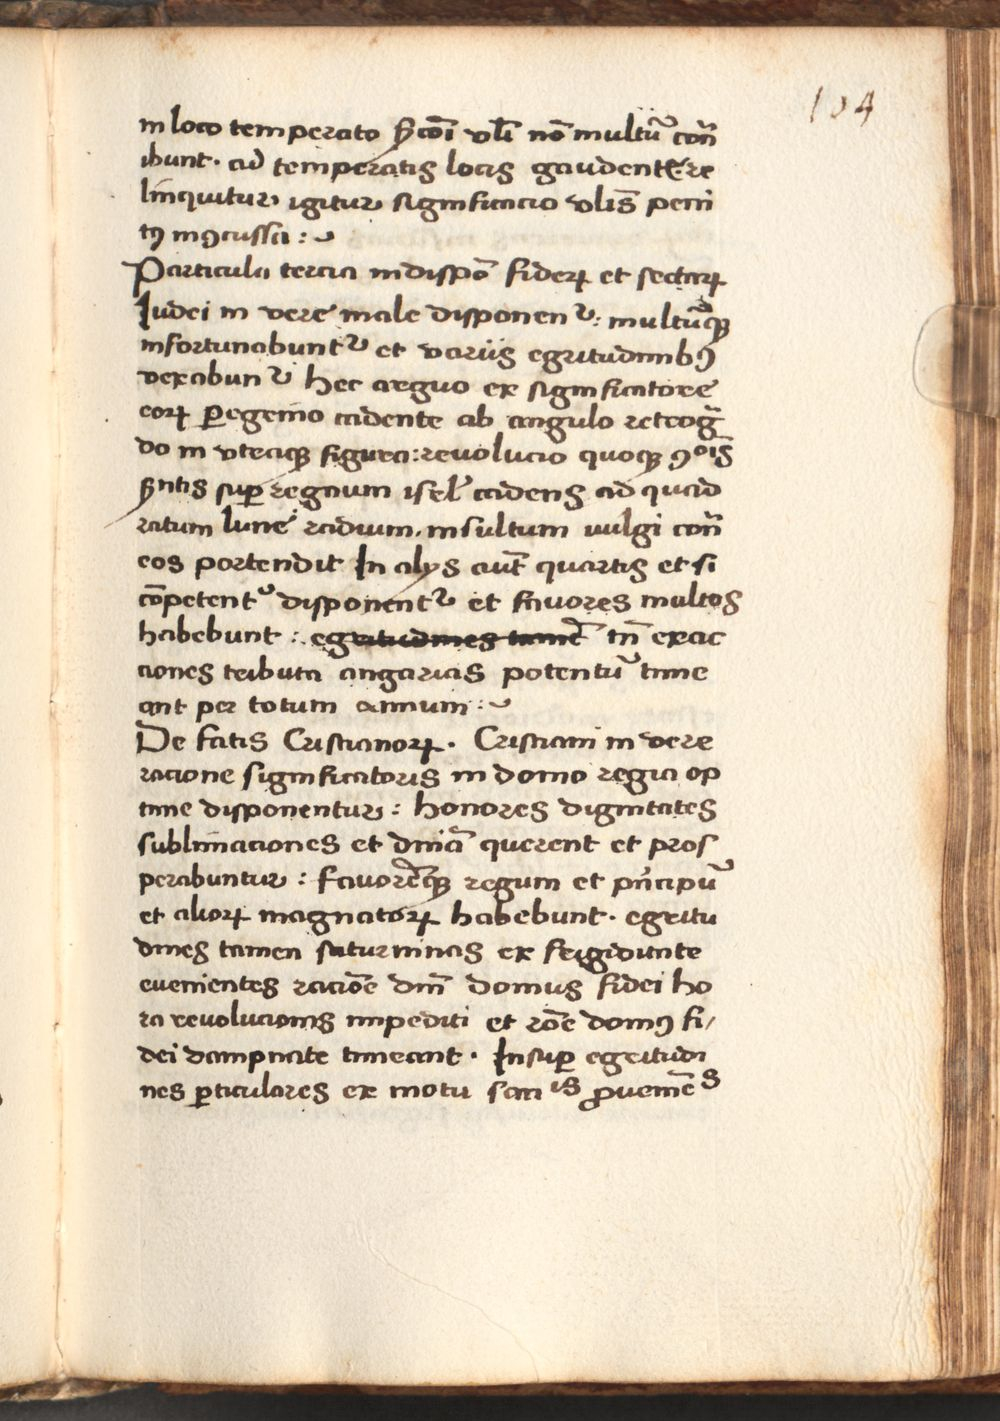 104
in loco temperato coi vli nō multū con̄
ibunt. cū temperatis locis gaudent. re
linquitur igitur significacio vlis peni
tꝰ inꝯcussa :
Particula tercia in dispō fiderꝝ et sectarꝝ
Iudei in vere male disponent᷑ : multūqꝫ
infortunabunt᷑ et variis egritudinibꝰ
vexabunt᷑ hec arguo ex significatore
eorꝝ ꝑegrino cadente ab angulo retrogͣ
do in vtraqꝫ figura : reuolucio quoqꝫ
super regnum isrl̄ cadens ad quad
ratum lune radium. insultum uulgi con̄
eos portendit In alijs aut̄ quartis et si
cōpetent᷑ disponent᷑ et fauores multos
habebunt : egritudines tamē tn̄ exac
ciones tributa angarias potentū time
ant per totum annum :
De fatis Cristianorꝝ. Cristiani in vere
racione significatoris in domo regia op
time disponentur : honores dignitates
sublimaciones et dn̄ia querent et pros
perabuntur : fauoresqꝫ regum et pn̄cipū
et aliorꝝ magnatorꝝ habebunt. egritu
dines tamen saturninas ex frigiditate
euenientes racōe dn̄i domus fidei ho
ra reuolucionis impediti et rōe domꝰ fi/
dei dampnate timeant. Insuꝑ egritudi
nes ꝑticulares ex motu satiis ꝓueniēs